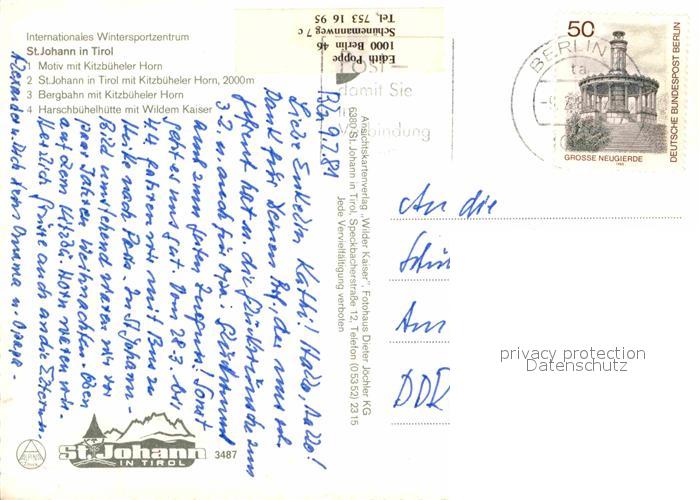 Internationales Wintersportzentrum
St. Johann in Tirol
1 Motiv mit Kitzbüheler Horn
2 St. Johann in Tirol mit Kitzbüheler Horn, 2000m
3 Bergbahn mit Kitzbüheler Horn
4 Harschbühelhütte mit Wildem Kaiser
Edith Poppe
1000 Berlin 46
Schünemannweg 7 c
Tel. 753 16 95
Post-
damit Sie
in
Verbindung
BERLIN
50
DEUTSCHE BUNDESPOST BERLIN
GROSSE NEUGIERDE
Ansichtskartenverlag „Wilder Kaiser", Fotohaus Dieter Jöchler KG
6380 St. Johann in Tirol, Speckbacherstraße 12, Telefon (05352) 2315
Jede Vervielfältigung verboten
Bln. 9.2.81
Liebe Enkelin Kathi! Hallo, Hallo!
Dank für Deinen Brf, der uns
gefreut hat u. die Glückwünsche zum
3.2. u. auch für Opa.
auch zum guten Zeugnis! Sonst
geht es uns gut. Vom 28.3. bis
4.4. fahren wir mit Bus zu
Heike nach In St. Johann-
Bild umstehend waren wir vor
paar Jahren Weihnachten. Oben
auf dem Kitzb. Horn waren wir.
Herzlich Grüße auch an die Eltern u.
Alexander u. Dich Deine Omama u. Opapa.
An die
Am
DDR
privacy protection
Datenschutz
St. Johann
IN TIROL
3487